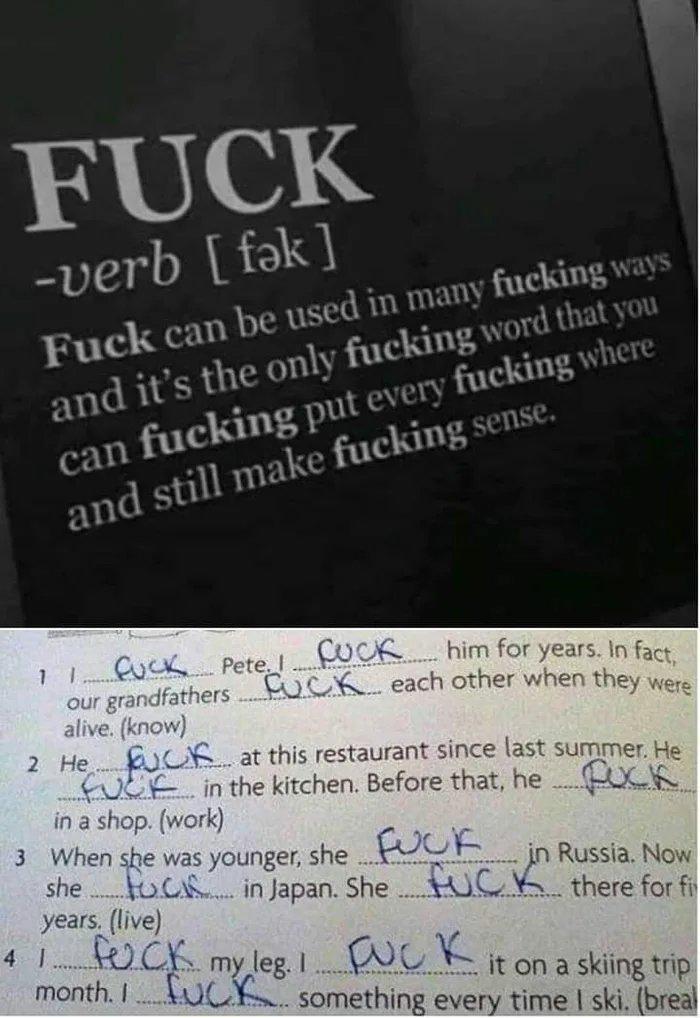 FUCK
-verb [fək]
Fuck can be used in many fucking ways
and it's the only fucking word that you
can fucking put every fucking where
and still make fucking sense.
1 I FUCK Pete. I FUCK him for years. In fact,
our grandfathers FUCK each other when they were
alive. (know)
2 He FUCK at this restaurant since last summer. He
FUCK in the kitchen. Before that, he FUCK
in a shop. (work)
3 When she was younger, she FUCK in Russia. Now
she FUCK in Japan. She FUCK there for
years. (live)
4 I FUCK my leg. I FUCK it on a skiing trip
month. I FUCK something every time I ski.